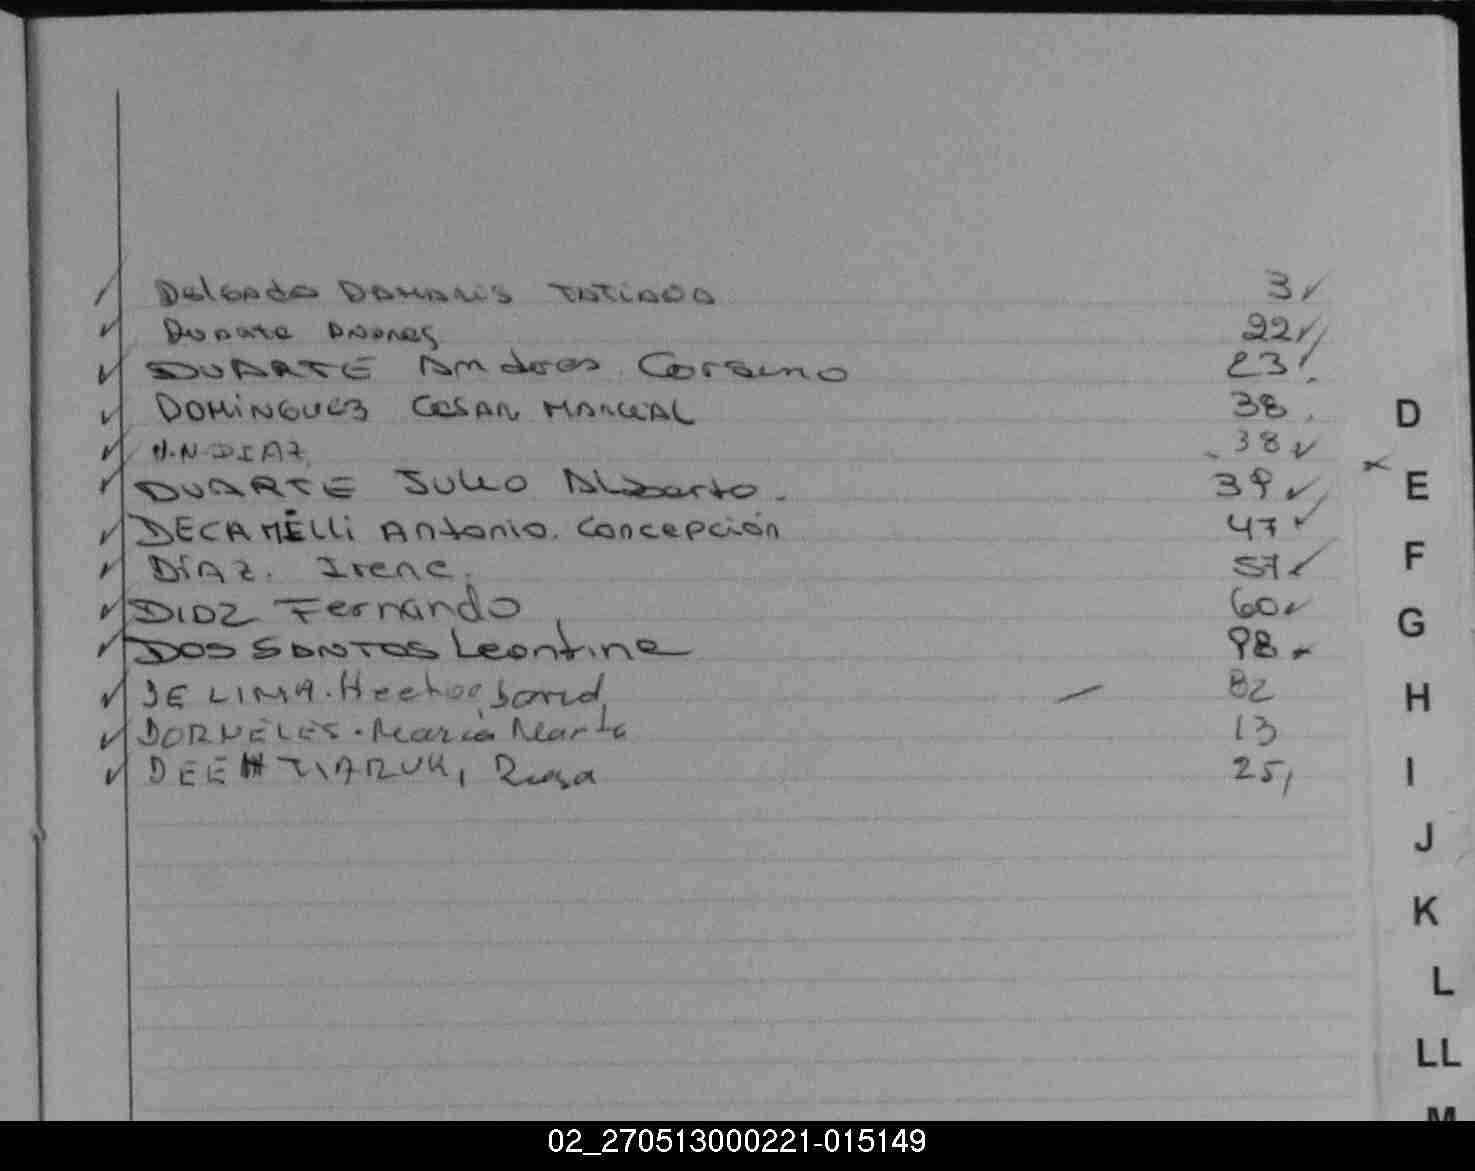 Delgado Damaris Tatiana 3 ✓
Duarte Andres 22 ✓
DUARTE Andres Corsino 23
DOMINGUEZ CESAR MARCIAL 38
N.N DIAZ 38 ✓
DUARTE Julio Alberto. 39 ✓
DECAMÉLLi Antonio. Concepción 47 ✓
DÍAZ. Irene. 57 ✓
DIAZ Fernando 60 ✓
DOS SANTOS Leontina 98
DE LIMA. Hector David 82
DORNELES. María Marta 13
Rosa 25
D
E
F
G
H
I
J
K
L
LL
M
02_270513000221-015149